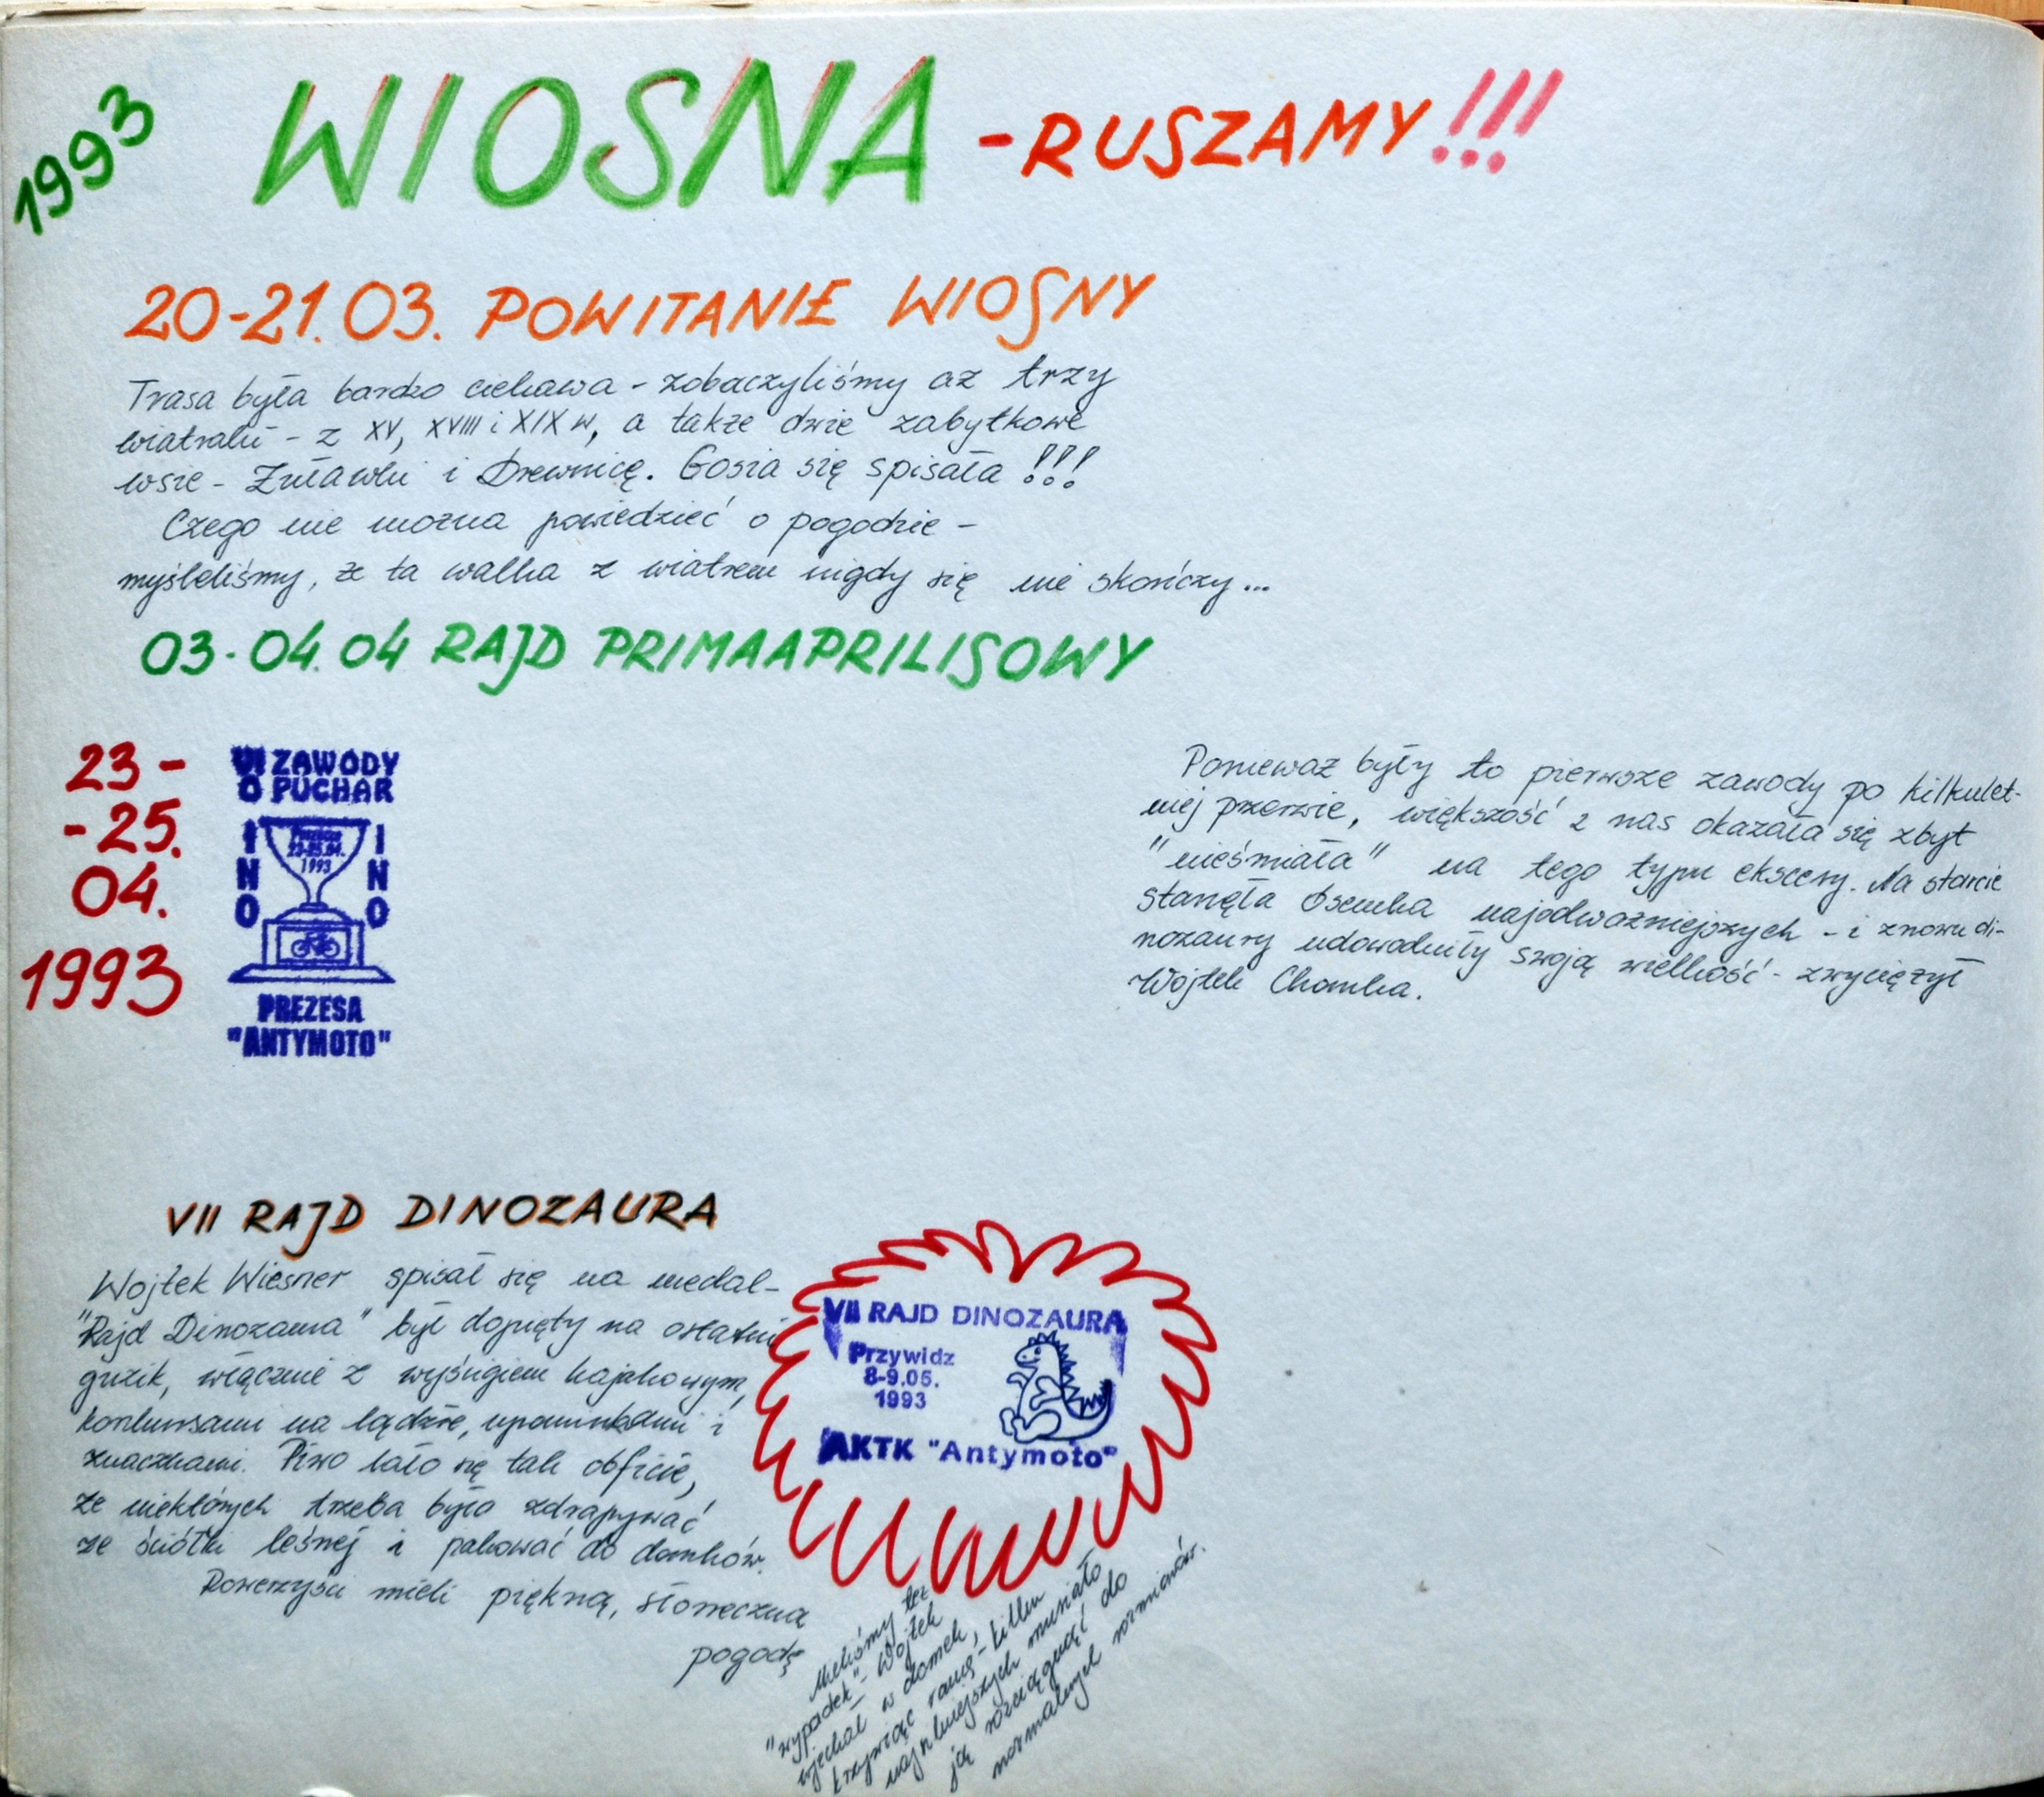 1993
WIOSNA - RUSZAMY!!!
20-21.03. POWITANIE WIOSNY
Trasa była bardzo ciekawa - zobaczyliśmy aż trzy
wiatraki - z XV, XVIII i XIX w, a także dwie zabytkowe
wsie - Żuławki i Drewnicę. Gosia się spisała!!!
Czego nie można powiedzieć o pogodzie -
myśleliśmy, że ta walka z wiatrem nigdy się nie skończy...
03-04.04 RAJD PRIMAAPRILISOWY
23-
-25.
04.
1993
VI ZAWODY
O PUCHAR
INO
1993
INO
PREZESA
"ANTYMOTO"
Ponieważ były to pierwsze zawody po kilkulet-
niej przerwie, większość z nas okazała się zbyt
"nieśmiała" na tego typu ekscesy. Na starcie
stanęła ósemka najodważniejszych - i znowu di-
nozaury udowodniły swoją wielkość - zwyciężył
Wojtek Chomka.
VII RAJD DINOZAURA
Wojtek Wiesner spisał się na medal -
"Rajd Dinozaura" był dopięty na ostatni
guzik, włącznie z wyścigiem kajakowym,
konkursami na lądzie, upominkami i
znaczkami. Piwo lało się tak obficie,
że niektórych trzeba było zdrapywać
ze ściółki leśnej i pakować do domków.
Rowerzyści mieli piękną, słoneczną
pogodę
VII RAJD DINOZAURA
Przywidz
8-9.05.
1993
AKTK "Antymoto"
Mieliśmy też
"wypadek" - Wojtek
wjechał w domek,
krzywiąc ramę - kilku
najsilniejszych musiało
ją rozciągnąć do
normalnych rozmiarów.